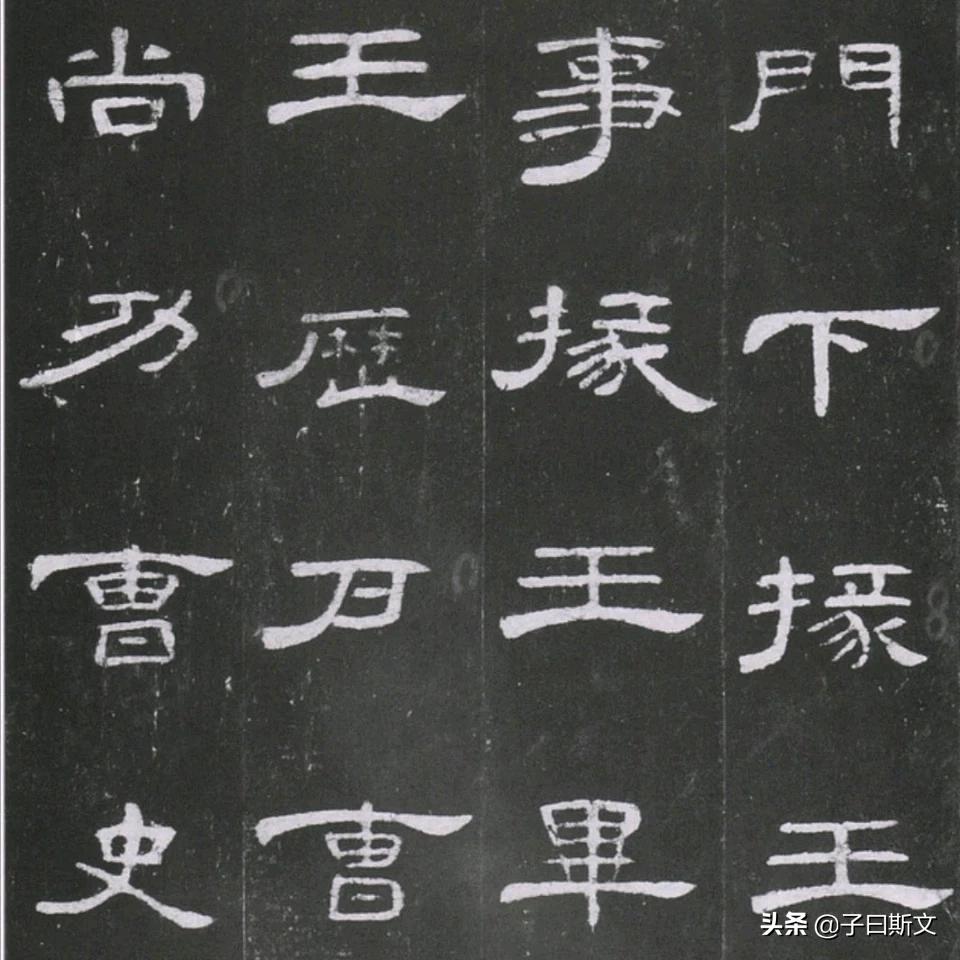 門下掾王
事掾王畢
王歷戶曹
尚功曹史
头条 @子曰斯文